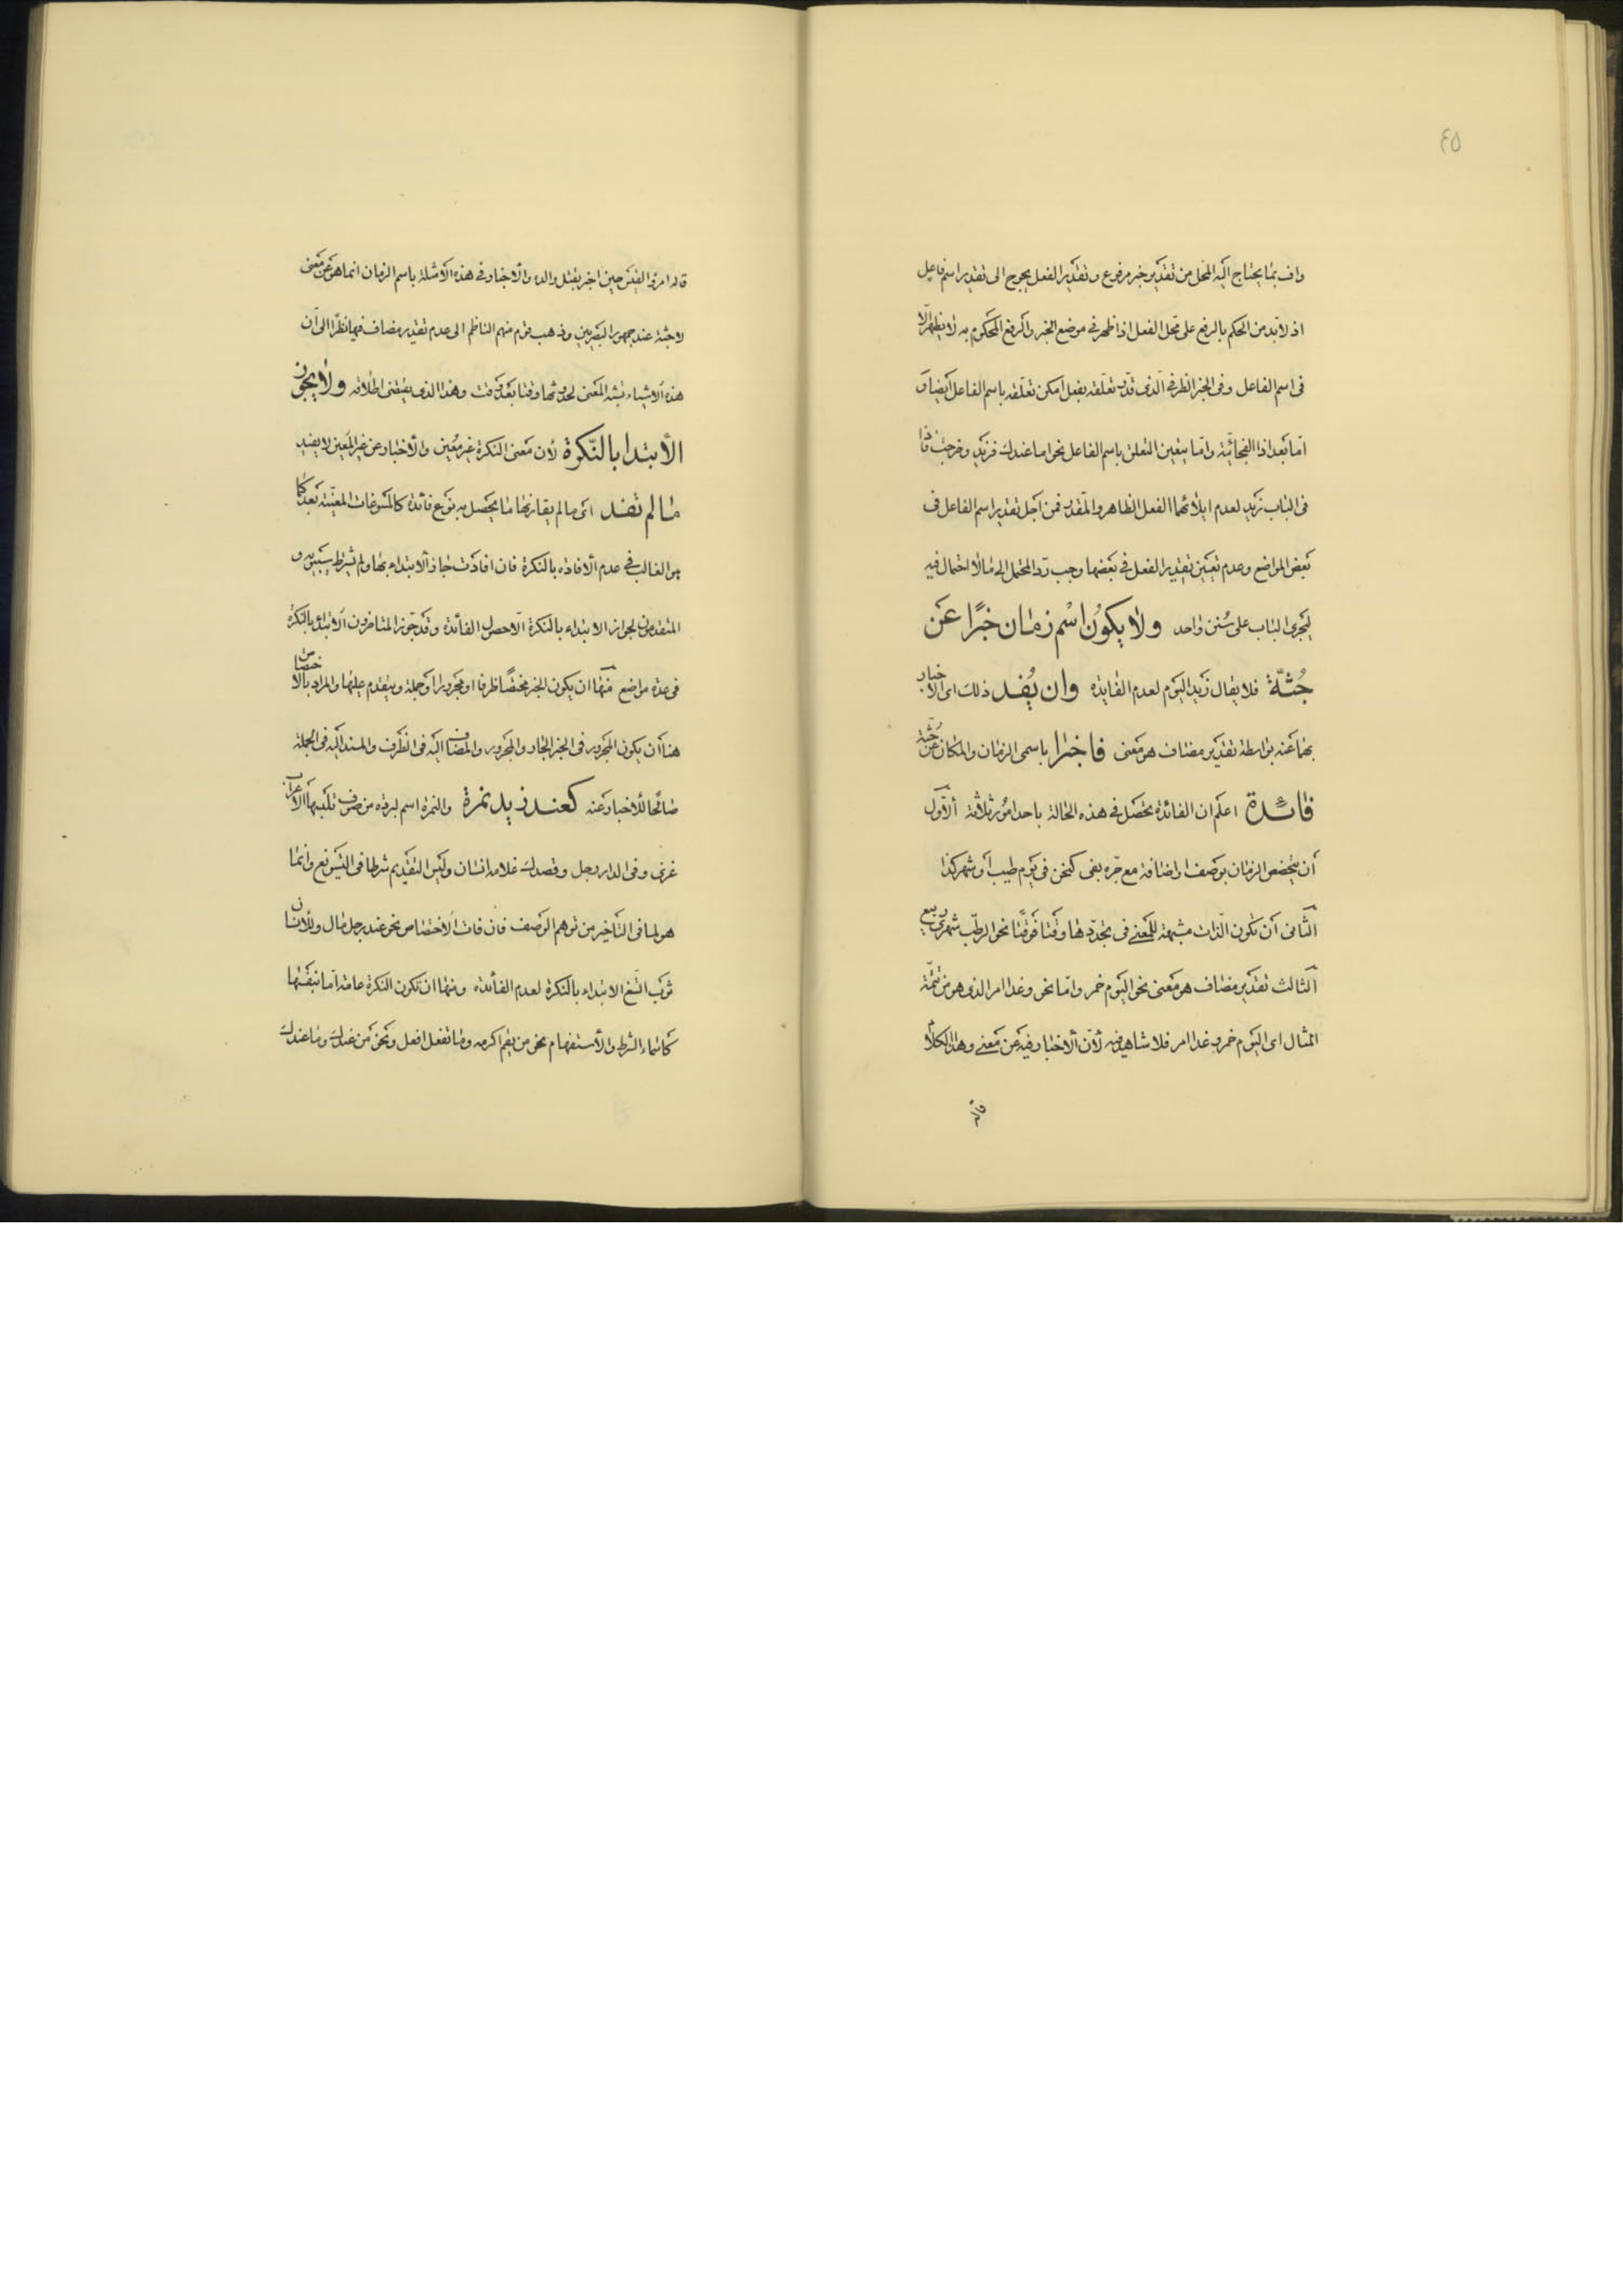 ٤٥
واف بما يحتاج اليه المحل من تقدير خبر مرفوع وتقدير الفعل يحوج الى تقدير اسم فاعل
اذ لابد من الحكم بالرفع على محل الفعل اذا ظهر فى موضع الخبر والرفع المحكوم به لا يظهر الا
فى اسم الفاعل وفى الخبر الظرفى الذى قدر تعلقه بفعل امكن تعلقه باسم الفاعل ايضا و
اما بعد اذا الفجائية واما يتعين التعلق باسم الفاعل نحو اما عندك فزيد وخرجت فاذا
فى الباب زيد لعدم ايلائهما الفعل الظاهر والمقدر فمن اجل تقدير اسم الفاعل فى
بعض المواضع وعدم تعين تقدير الفعل فى بعضها وجب رد المحتمل الى ما لا احتمال فيه
ليجرى الباب على سنن واحد ولا يكون اسم زمان خبرا عن
جثة فلا يقال زيد اليوم لعدم الفايدة وان يفد ذلك اى الاخبار
بهما عنه بواسطة تقدير مضاف هو معنى فاخبرا باسمى الزمان والمكان عن جثة
فائدة اعلم ان الفائدة تحصل فى هذه الحالة باحد امور ثلاثة الاول
ان يتخصص الزمان بوصف او اضافة مع جره بفى كنحن فى يوم طيب او شهر كذا
الثانى ان تكون الذات مشبهة للمعنى فى تجددها وقتا فوقتا نحو الرطب شهرى ربيع
الثالث تقدير مضاف هو معنى نحو اليوم خمر واما نحو وغدا امر الذى هو من تتمة
المثال اى اليوم خمر وغدا امر فلا شاهد فيه لان الاخبار فيه عن معنى وهذا الكلام
قاله
قاله امرؤ القيس حين اخبر بقتل والده والاخبار فى هذه الامثلة باسم الزمان انما هو عن معنى
لا جثة عند جمهور البصريين وذهب قوم منهم الناظم الى عدم تقدير مضاف فيها نظرا الى ان
هذه الاشياء تشبه المعنى لحدوثها وقتا بعد وقت وهذا الذى يقتضى اطلاقه ولا يجوز
الابتدا بالنكرة لان معنى النكرة غير معين والاخبار عن غير المعين لا يفيد
ما لم تفد اى ما لم يقارنها ما يحصل به نوع فائدة كالمسوغات المعينة بعد كما
هو الغالب فى عدم الافاده بالنكرة فان افادت جاز الابتداء بها ولم يشترط سيبويه و
المتقدمون لجواز الابتداء بالنكرة الا حصول الفائدة وقد جوز المتاخرون الابتداء بالنكرة
فى عدة مواضع منها ان يكون الخبر مختصا ظرفا او مجرورا او جملة ويتقدم عليها والمراد بالاختصاص
هنا ان يكون المجرور فى الخبر الجار والمجرور والمضاف اليه فى الظرف والمسند اليه فى الجملة
صالحا للاخبار عنه كعند زيد نمرة والنمرة اسم لبردة من صوف تلبسها الاعراب
نحو وفى الدار رجل وقصدك غلامه انسان وليس التقديم شرطا فى التسويغ وانما
هو لما فى التاخير من توهم الوصف فان فات الاختصاص نحو عند رجل مال وللانسان
ثوب امتنع الابتداء بالنكرة لعدم الفائدة ومنها ان تكون النكرة عامة اما بنفسها
كاسماء الشرط والاستفهام نحو من يقم اكرمه وما تفعل افعل ونحو من عندك وما عندك